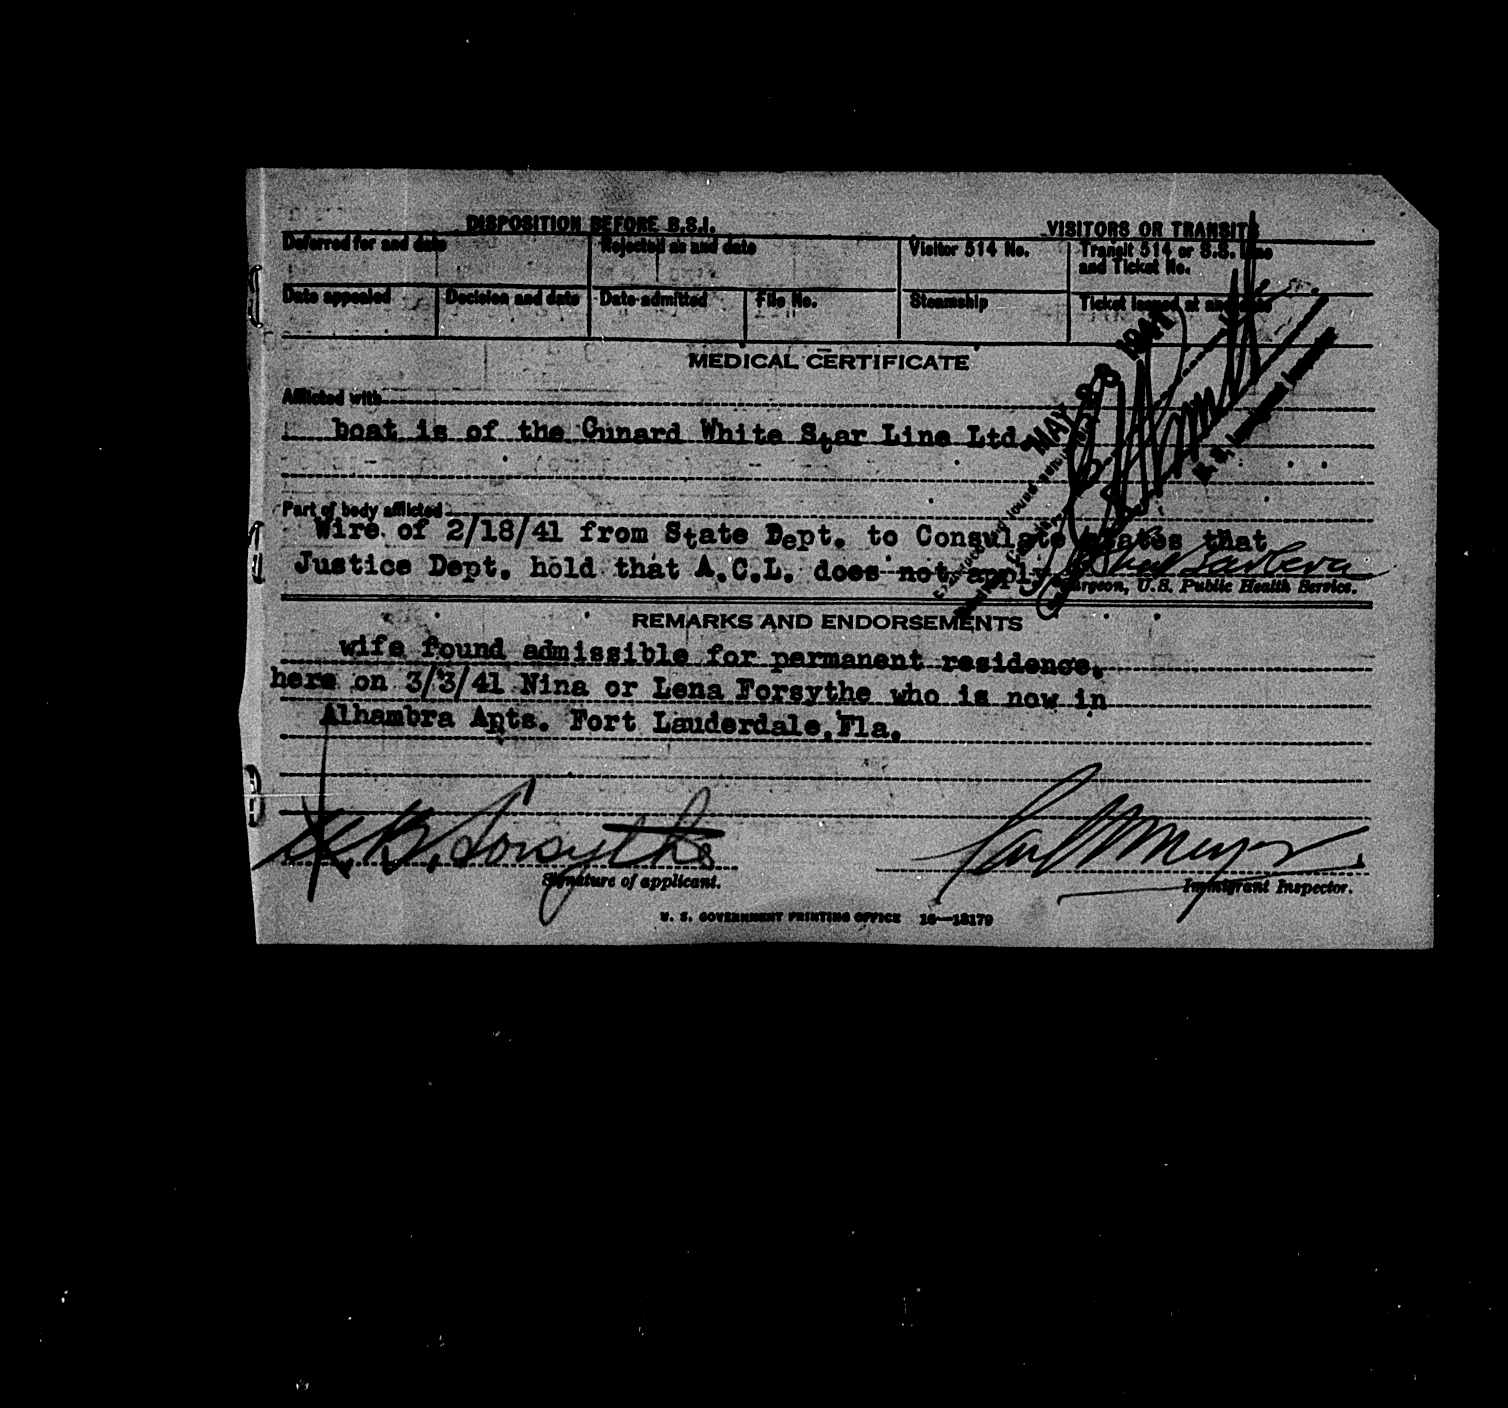 DISPOSITION BEFORE B.S.I.
VISITORS OR TRANSITS
Deferred for and date
Rejected as and date
Visitor 514 No.
Transit 514 or S.S. Line
and Ticket No.
Date appealed
Decision and date
Date admitted
File No.
Steamship
Ticket issued at and date
MEDICAL CERTIFICATE
Afflicted with
boat is of the Cunard White Star Line Ltd.
MAY 1941
Part of body afflicted
Wire of 2/18/41 from State Dept. to Consulate states that
Justice Dept. hold that A.C.L. does not apply.
Surgeon, U.S. Public Health Service.
REMARKS AND ENDORSEMENTS
wife found admissible for permanent residence.
here on 3/3/41 Nina or Lena Forsythe who is now in
Alhambra Apts. Fort Lauderdale, Fla.
B. Forsythe
Signature of applicant.
Immigrant Inspector.
U. S. GOVERNMENT PRINTING OFFICE 16—13179